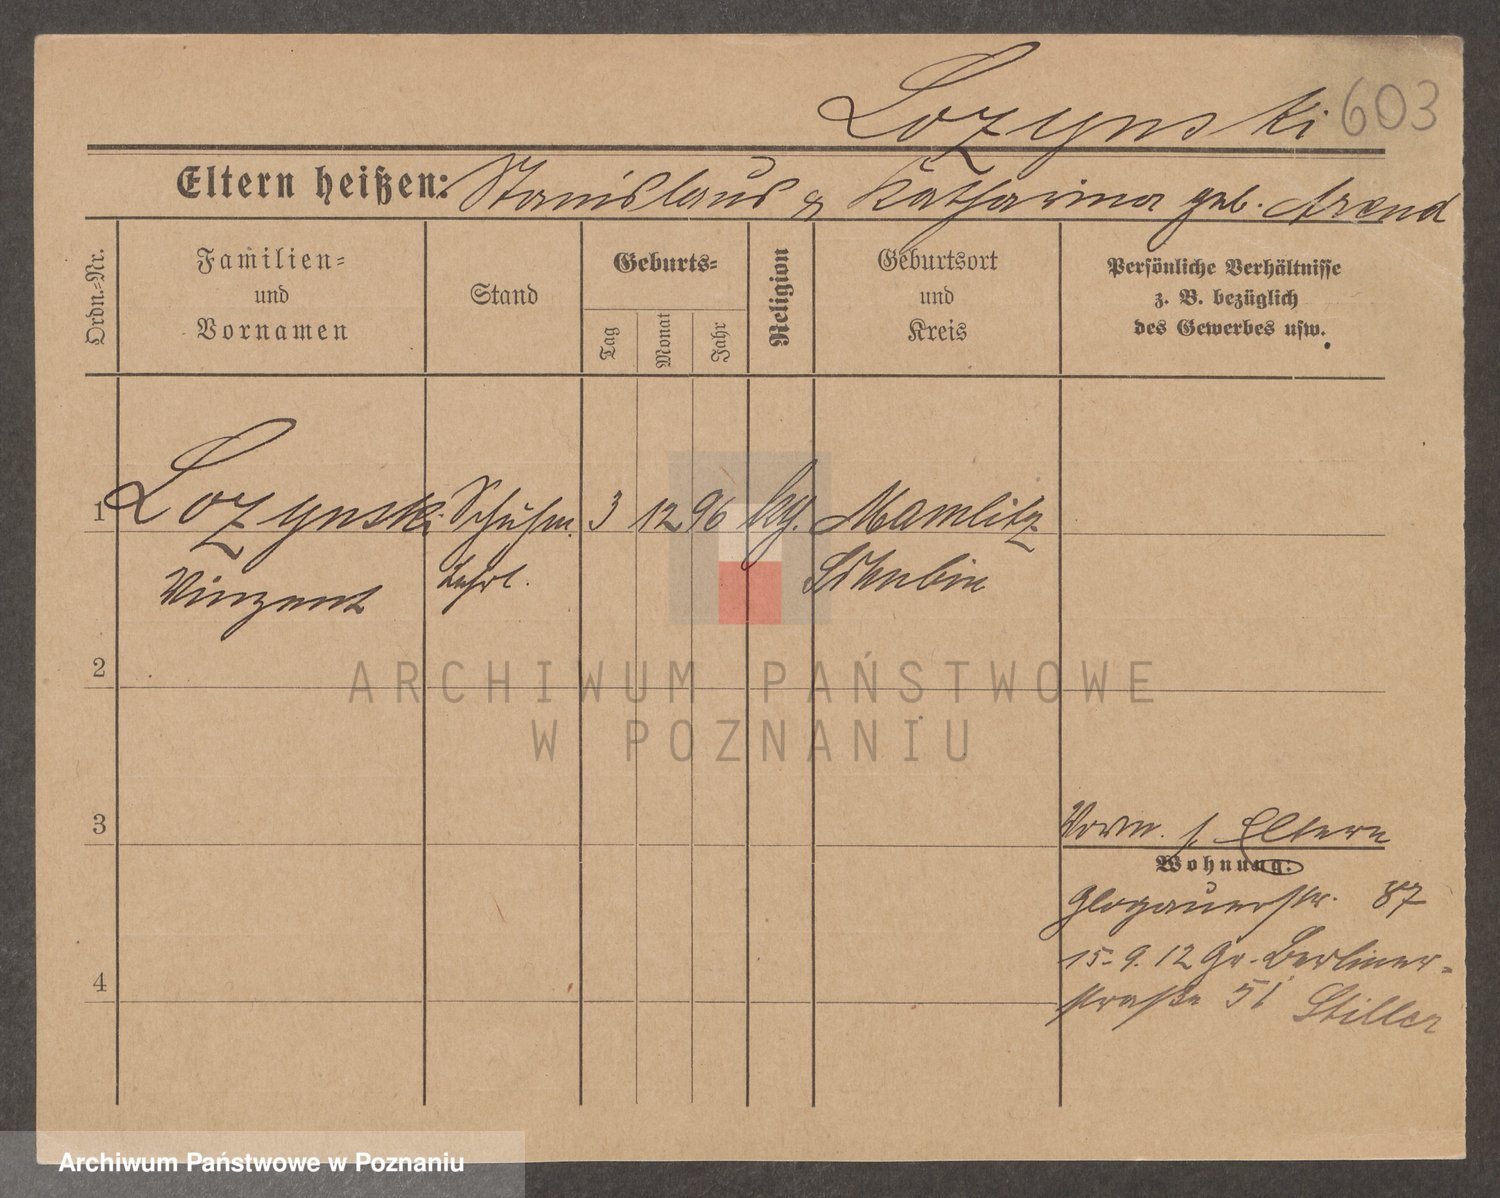 Lozynski 603
Eltern heißen: Stanislaus & Katharina geb. Arend
Ordn.=Nr.
Familien=
und
Vornamen
Stand
Geburts=
Tag
Monat
Jahr
Religion
Geburtsort
und
Kreis
Persönliche Verhältnisse
z. B. bezüglich
des Gewerbes usw.
1 Lozynski Schuhm. 3 12 96 kg. Mamlitz
Vinzent Lehrl. Schubin
2
3
4
Vorm. s. Eltern
Wohnung:
Glogauerstr. 87
15.9.12 Gr. Berliner=
straße 51 Stiller
ARCHIWUM PAŃSTWOWE
W POZNANIU
Archiwum Państwowe w Poznaniu